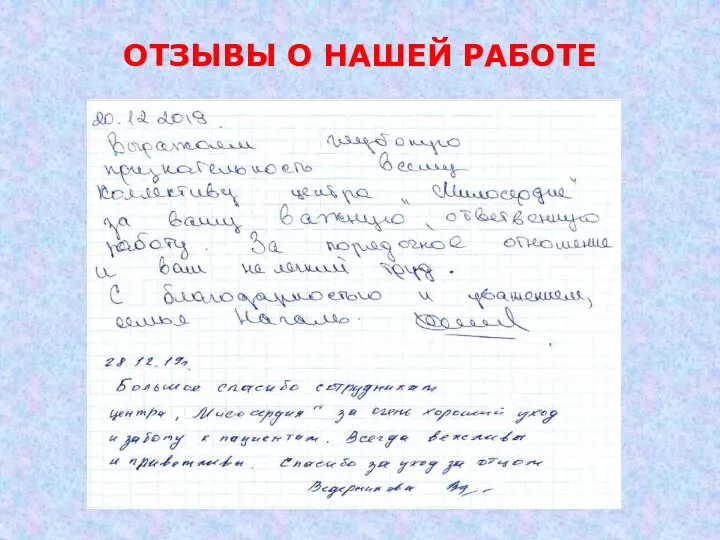 ОТЗЫВЫ О НАШЕЙ РАБОТЕ
20.12.2019
Выражаем глубокую
признательность всему
коллективу центра „Милосердие"
за вашу важную, ответственную
работу. За порядочное отношение
и ваш не легкий труд.
С благодарностью и уважением,
семья
28.12.19г.
Большое спасибо сотрудникам
центра „Милосердия" за очень хороший уход
и заботу к пациентам. Всегда вежливы
и приветливы. Спасибо за уход за отцом
Ведерникова